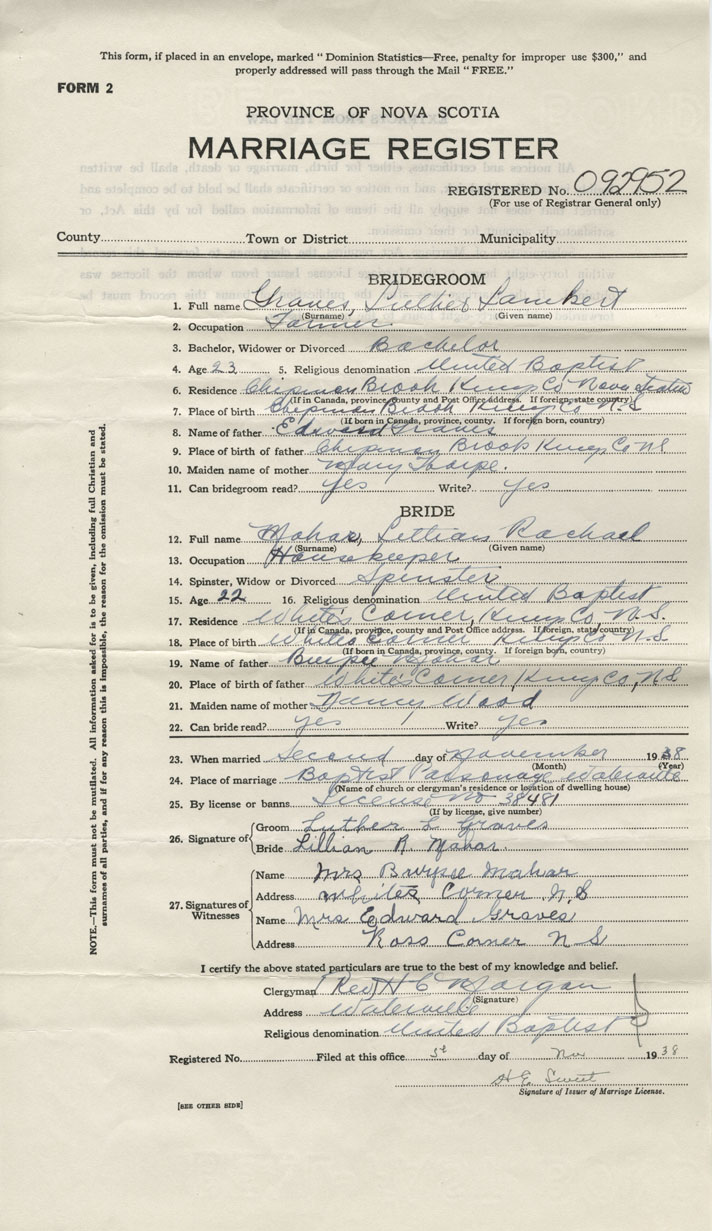 This form, if placed in an envelope, marked "Dominion Statistics—Free, penalty for improper use $300," and
properly addressed will pass through the Mail "FREE."
FORM 2
PROVINCE OF NOVA SCOTIA
MARRIAGE REGISTER
REGISTERED No. 092952
(For use of Registrar General only)
County Town or District Municipality
BRIDEGROOM
1. Full name Graves, Luther Lambert
(Surname) (Given name)
2. Occupation Farmer
3. Bachelor, Widower or Divorced Bachelor
4. Age 23 5. Religious denomination United Baptist
6. Residence Chipman Brook Kings Co Nova Scotia
(If in Canada, province, county and Post Office address. If foreign, state country)
7. Place of birth Chipman Brook Kings Co N.S
(If born in Canada, province, county. If foreign born, country)
8. Name of father Edward Graves
9. Place of birth of father Chipman Brook Kings Co NS
10. Maiden name of mother Mary Thorpe.
11. Can bridegroom read? yes Write? yes
BRIDE
12. Full name Mahar, Lillian Rachael
(Surname) (Given name)
13. Occupation Housekeeper
14. Spinster, Widow or Divorced Spinster
15. Age 22 16. Religious denomination United Baptist
17. Residence White's Corner, Kings Co, N.S.
(If in Canada, province, county and Post Office address. If foreign, state country)
18. Place of birth White's Corner Kings Co N.S
(If born in Canada, province, county. If foreign born, country)
19. Name of father Burpee Mahar
20. Place of birth of father White's Corner Kings Co, N.S
21. Maiden name of mother Nancy Wood
22. Can bride read? yes Write? yes
23. When married Second day of November 1938
(Month) (Year)
24. Place of marriage Baptist Parsonage Waterville
(Name of church or clergyman's residence or location of dwelling house)
25. By license or banns License No 38481
(If by license, give number)
26. Signature of Groom Luther L Graves
Bride Lillian R. Mahar.
27. Signatures of Witnesses
Name Mrs Burpee Mahar
Address Whites Corner N.S
Name Mrs Edward Graves
Address Ross Corner N S
I certify the above stated particulars are true to the best of my knowledge and belief.
Clergyman (Rev) H C Morgan
(Signature)
Address Waterville
Religious denomination United Baptist
Registered No. Filed at this office day of Nov 1938
H.E. Sweet
Signature of Issuer of Marriage License.
[SEE OTHER SIDE]
NOTE.—This form must not be mutilated. All information asked for is to be given, including full Christian and
surnames of all parties, and if for any reason this is impossible, the reason for the omission must be stated.